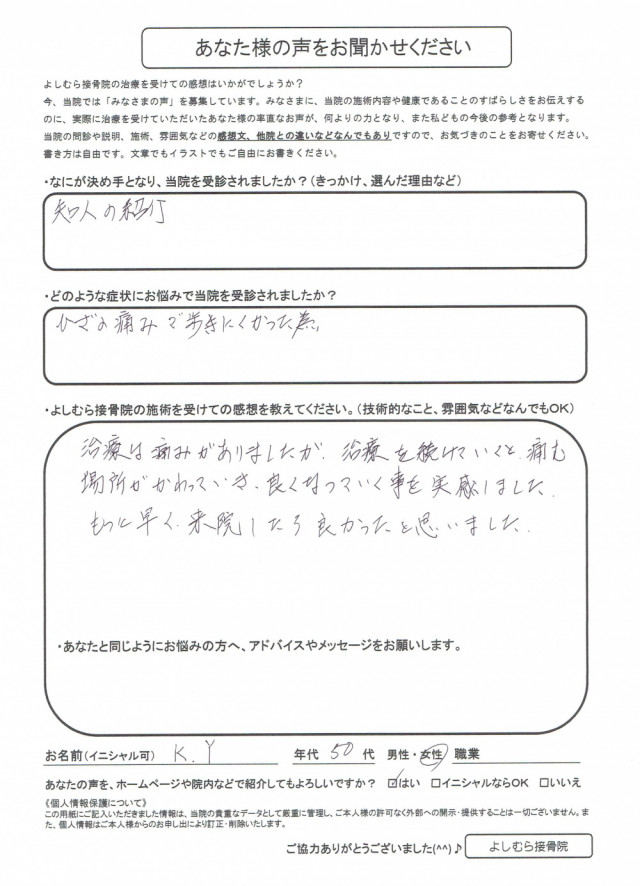 あなた様の声をお聞かせください
よしむら接骨院の治療を受けての感想はいかがでしょうか？
今、当院では「みなさまの声」を募集しています。みなさまに、当院の施術内容や健康であることのすばらしさをお伝えする
のに、実際に治療を受けていただいたあなた様の率直なお声が、何よりの力となり、また私どもの今後の参考となります。
当院の問診や説明、施術、雰囲気などの感想文、他院との違いなどなんでもありですので、お気づきのことをお寄せください。
書き方は自由です。文章でもイラストでもご自由にお書きください。
・なにが決め手となり、当院を受診されましたか？（きっかけ、選んだ理由など）
知人の紹介
・どのような症状にお悩みで当院を受診されましたか？
ひざの痛みで歩きにくかった為。
・よしむら接骨院の施術を受けての感想を教えてください。（技術的なこと、雰囲気などなんでもOK）
治療は痛みがありましたが、治療を続けていくと、痛む
場所がかわっていき、良くなっていく事を実感しました。
もっと早く、来院したら良かったと思いました。
・あなたと同じようにお悩みの方へ、アドバイスやメッセージをお願いします。
お名前（イニシャル可） K.Y 年代 50 代 男性・女性 職業
あなたの声を、ホームページや院内などで紹介してもよろしいですか？ ☑はい □イニシャルならOK □いいえ
《個人情報保護について》
この用紙にご記入いただきました情報は、当院の貴重なデータとして厳重に管理し、ご本人様の許可なく外部への開示・提供することは一切ございません。ま
た、個人情報はご本人様からのお申し出により訂正・削除いたします。
ご協力ありがとうございました(^^)♪ よしむら接骨院